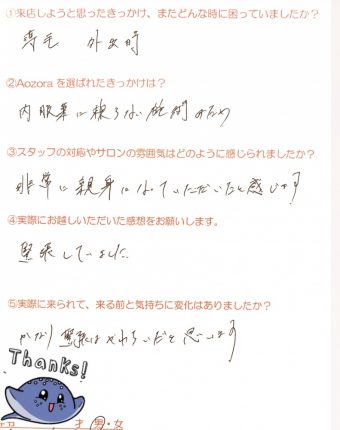 ①来店しようと思ったきっかけ、またどんな時に困っていましたか？
薄毛 外出時
②Aozoraを選ばれたきっかけは？
内服薬に頼らない施術のため
③スタッフの対応やサロンの雰囲気はどのように感じられましたか？
非常に親身になっていただいたと感じます
④実際にお越しいただいた感想をお願いします。
緊張していました
⑤実際に来られて、来る前と気持ちに変化はありましたか？
かなり緊張はやわらいだと思います
Thanks!
才 男・女